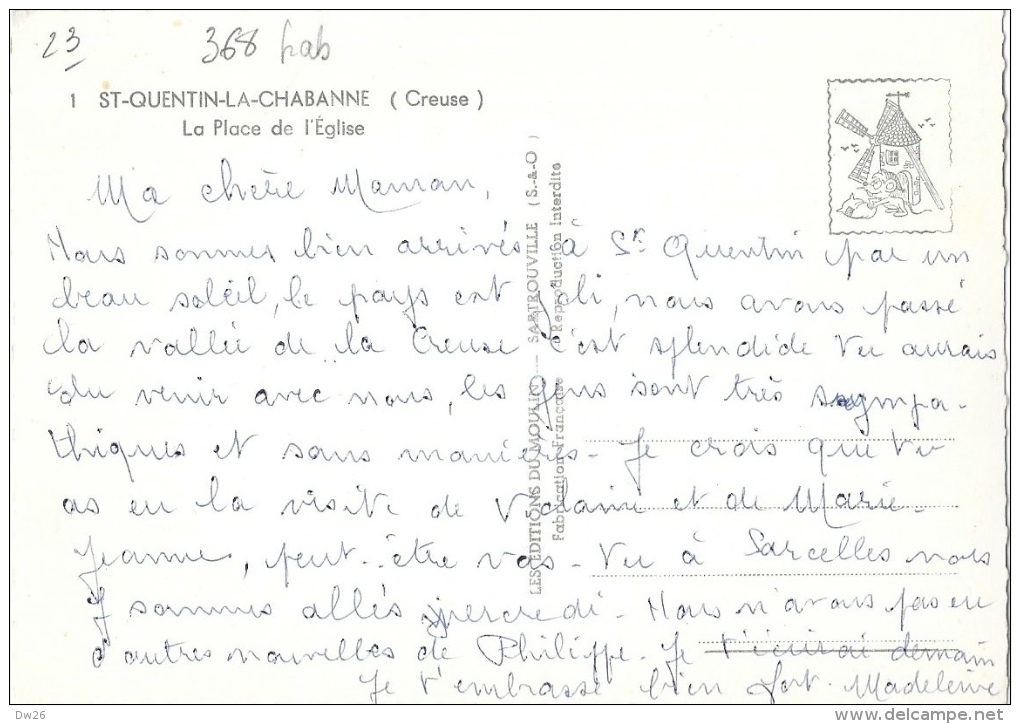 23
368 hab
1 ST-QUENTIN-LA-CHABANNE ( Creuse )
La Place de l'Église
Ma chère Maman,
Nous sommes bien arrivés à St Quentin par un
beau soleil, le pays est joli, nous avons passé
la vallée de la Creuse c'est splendide tu aurais
du venir avec nous, les gens sont très sympa-
thiques et sans manières - Je crois que tu
as eu la visite de et de Marie-
Jeanne, peut-être vas-tu à Sarcelles nous
y sommes allés mercredi. Nous n'avons pas eu
d'autres nouvelles de Philippe. Je t'écrirai demain
Je t'embrasse bien fort. Madeleine
LES EDITIONS DU MOULIN — SARTROUVILLE (S.-&-O)
Fabrication Française Reproduction Interdite
Dw26
http://www.delcampe.net